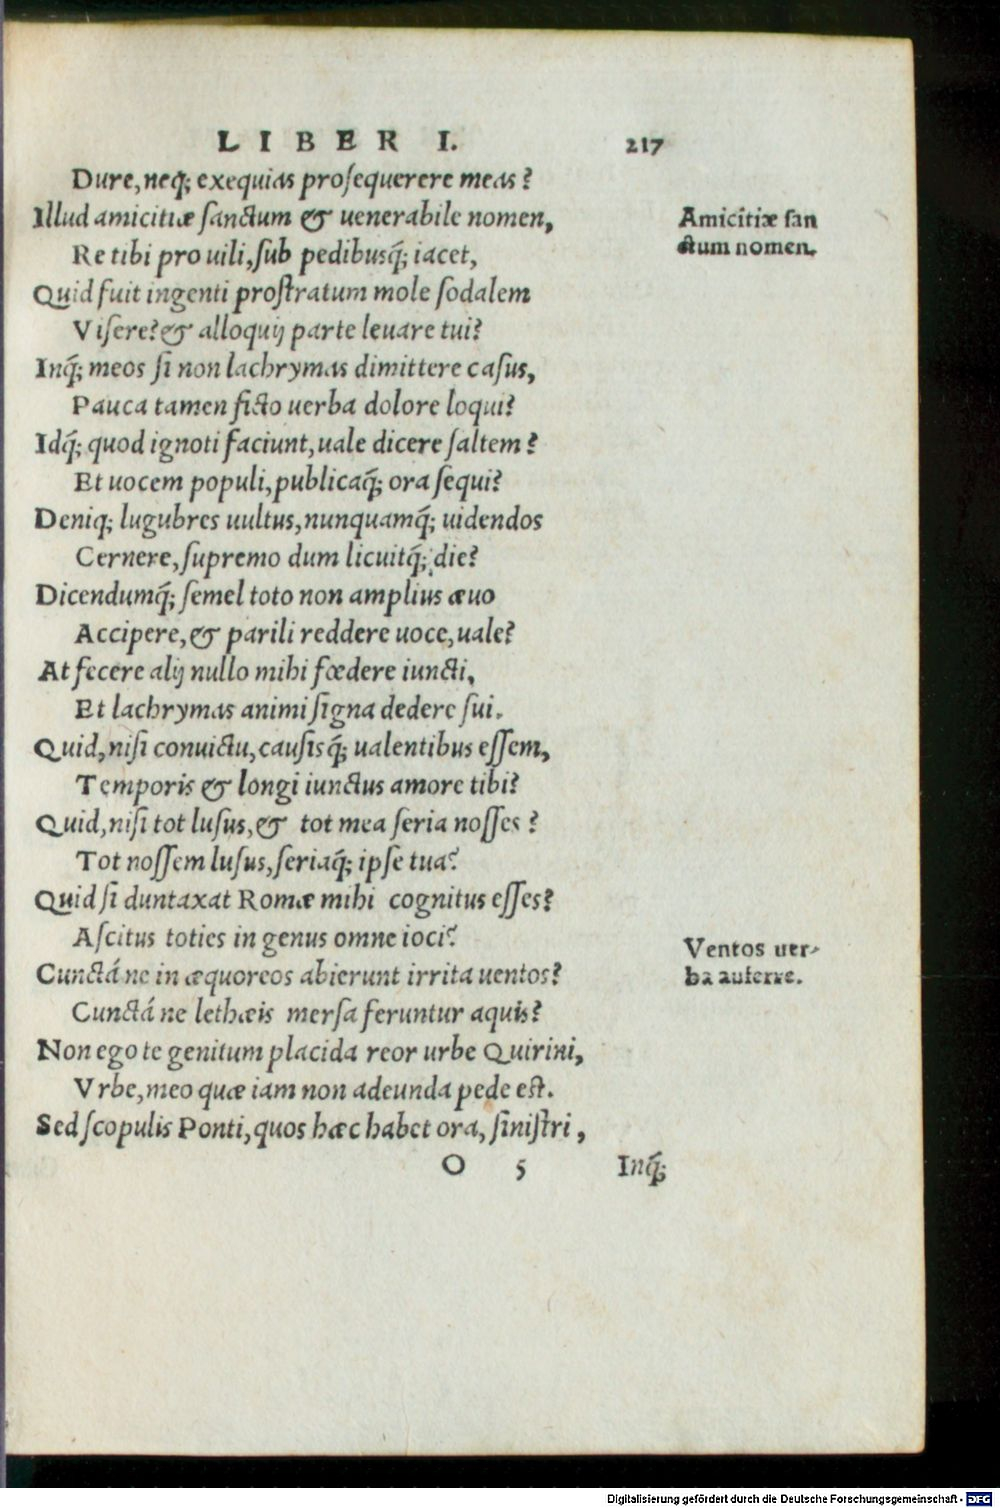 LIBER I. 217
Dure, neq; exequias prosequerere meas?
Illud amicitiæ sanctum & uenerabile nomen,
Re tibi pro uili, sub pedibusq́; iacet,
Quid fuit ingenti prostratum mole sodalem
Visere? & alloquij parte leuare tui?
Inq́; meos si non lachrymas dimittere casus,
Pauca tamen ficto uerba dolore loqui?
Idq́; quod ignoti faciunt, uale dicere saltem?
Et uocem populi, publicaq́; ora sequi?
Deniq; lugubres uultus, nunquamq́; uidendos
Cernere, supremo dum licuitq́; die?
Dicendumq́; semel toto non amplius æuo
Accipere, & parili reddere uoce, uale?
At fecere alij nullo mihi fœdere iuncti,
Et lachrymas animi signa dedere sui.
Quid, nisi convictu, causisq́; ualentibus essem,
Temporis & longi iunctus amore tibi?
Quid, nisi tot lusus, & tot mea seria nosses?
Tot nossem lusus, seriaq́; ipse tua?
Quid si duntaxat Romæ mihi cognitus esses?
Ascitus toties in genus omne ioci?
Cunctáne in æquoreos abierunt irrita uentos?
Cunctáne lethæis mersa feruntur aquis?
Non ego te genitum placida reor urbe Quirini,
Vrbe, meo quæ iam non adeunda pede est.
Sed scopulis Ponti, quos hæc habet ora, sinistri,
O 5 Inq́;
Amicitiæ san
ctum nomen.
Ventos uer-
ba auferre.
Digitalisierung gefördert durch die Deutsche Forschungsgemeinschaft - DFG